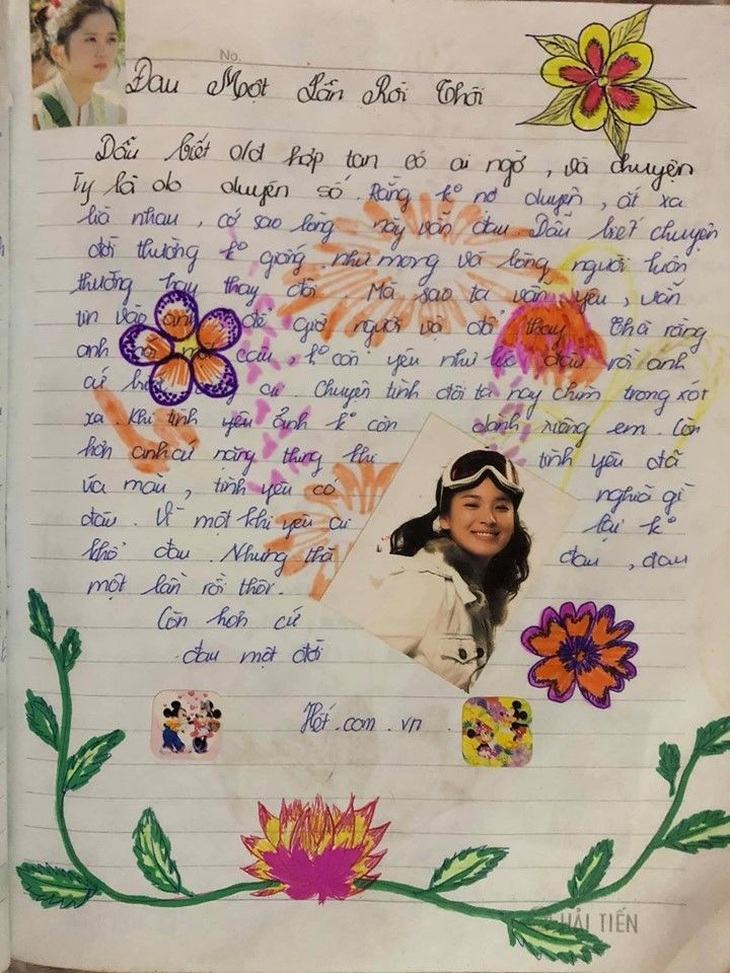 No.
Đau Một Lần Rồi Thôi
Dẫu biết hợp tan có ai ngờ, và chuyện
Ty là do duyên số. Rằng ko nợ duyên, ắt xa
lià nhau, cớ sao lòng này vẫn đau. Dẫu biết chuyện
đời thường ko giống như mong và lòng người luôn
thường hay thay đổi. Mà sao ta vẫn yêu, vẫn
tin vào anh để giờ người vội đổi thay. Thà rằng
anh nói một câu, ko còn yêu như lúc đầu rồi anh
cứ cu. Chuyện tình đôi ta nay chìm trong xót
xa. Khi tình yêu ảnh ko còn dành riêng em. Còn
hơn anh cứ nặng thing khi tình yêu đã
úa màu, tình yêu có nghĩa gì
đâu. Vì một khi yêu ai lại ko
khổ đau. Nhưng thà đau, đau
một lần rồi thôi.
Còn hơn cứ
đau một đời
Hết.com.vn.
HẢI TIẾN